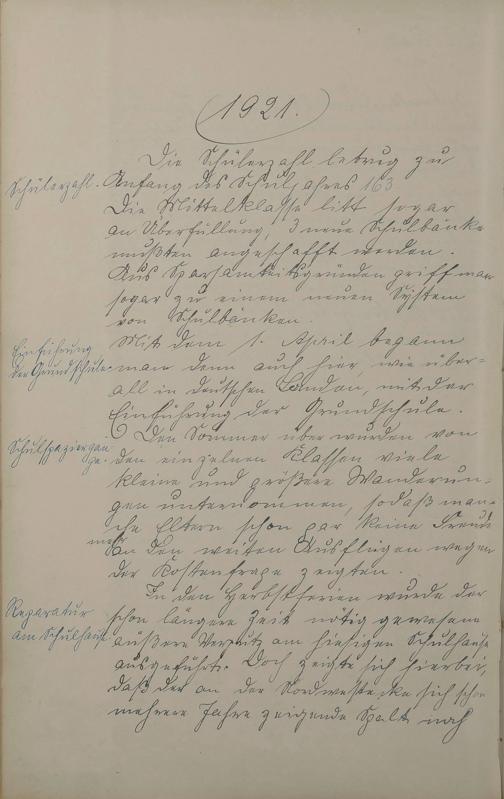 1921.
Die Schülerzahl betrug zu
Schülerzahl. Anfang des Schuljahres 163
Die Mittelklasse litt sogar
an Überfüllung, 3 neue Schulbänke
mußten angeschafft werden.
Aus Sparsamkeitsgründen griff man
sogar zu einem neuen System
von Schulbänken.
Mit dem 1. April begann
Einführung
der Grundschule. man denn auch hier, wie über=
all in deutschen Landen, mit der
Einführung der Grundschule.
Den Sommer über wurden von
Schulspaziergän
ge. den einzelnen Klassen viele
kleine und größere Wanderun=
gen unternommen, sodaß man=
che Eltern schon gar keine Freude
mehr an den weiten Ausflügen wegen
der Kostenfrage zeigten.
In den Herbstferien wurde der
Reparatur
am Schulhause schon längere Zeit nötig gewesene
äußere Verputz am hiesigen Schulhause
ausgeführt. Doch zeigte sich hierbei,
daß der an der Nordwestecke sich schon
mehrere Jahre zeigende Spalt noch